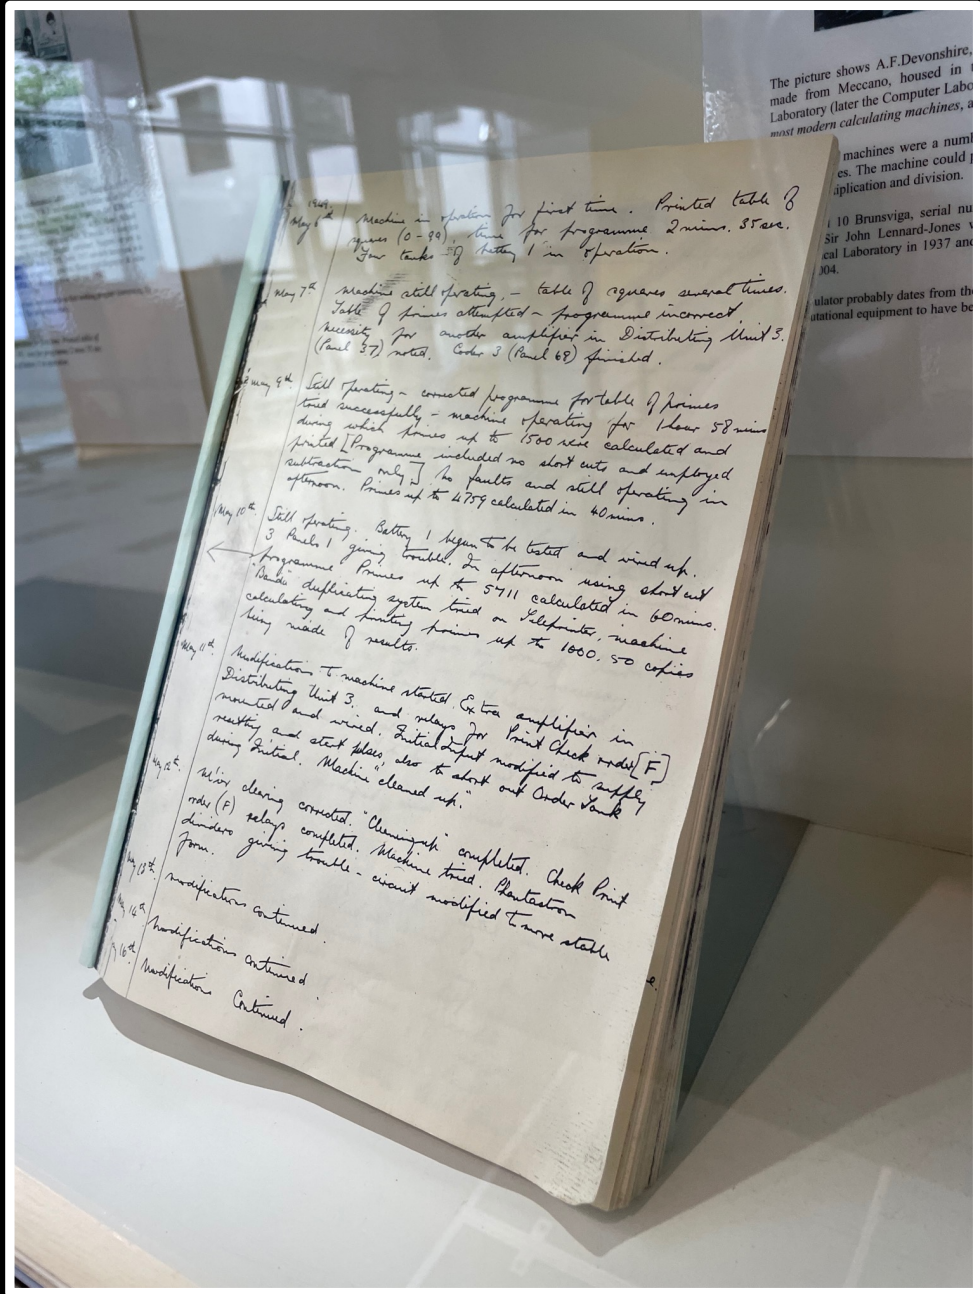 1949
May 6th Machine in operation for first time. Printed table of
squares (0-99), time for programme 2 mins. 35 sec.
Four tanks of battery 1 in operation.
May 7th Machine still operating, - table of squares several times.
Table of primes attempted - programme incorrect.
Necessity for another amplifier in Distributing Unit 3.
(Panel 37) noted. Coder 3 (Panel 68) finished.
May 9th Still operating - corrected programme for table of primes
tried successfully - machine operating for 1 hour 58 mins
during which primes up to 1500 were calculated and
printed [Programme included no short cuts and employed
subtraction only]. No faults and still operating in
afternoon. Primes up to 4759 calculated in 40 mins.
May 10th Still operating. Battery 1 began to be tested and wired up.
3 Panels 1 giving trouble. In afternoon using short cut
programme Primes up to 5711 calculated in 60 mins.
"Banda" duplicating system tried on Teleprinter, machine
calculating and printing primes up to 1000. 50 copies
being made of results.
May 11th Modifications to machine started. Extra amplifier in
Distributing Unit 3. and relays for Print Check order [F]
mounted and wired. Initial Input modified to supply
resetting and start pulses, also to short out Order Tank
during Initial. Machine "cleaned up".
May 12th clearing corrected. "Cleaning up" completed. Check Print
order (F) relays completed. Machine tried. Phantastron
dividers giving trouble - circuit modified to more stable
form.
May 13th modifications continued.
May 14th Modifications continued.
16th Modifications Continued.
The picture shows A.F.Devonshire,
made from Meccano, housed in
Laboratory (later the Computer Labo
most modern calculating machines, a
machines were a numb
es. The machine could p
iplication and division.
10 Brunsviga, serial nu
Sir John Lennard-Jones
cal Laboratory in 1937 and
004.
ulator probably dates from the
utational equipment to have be